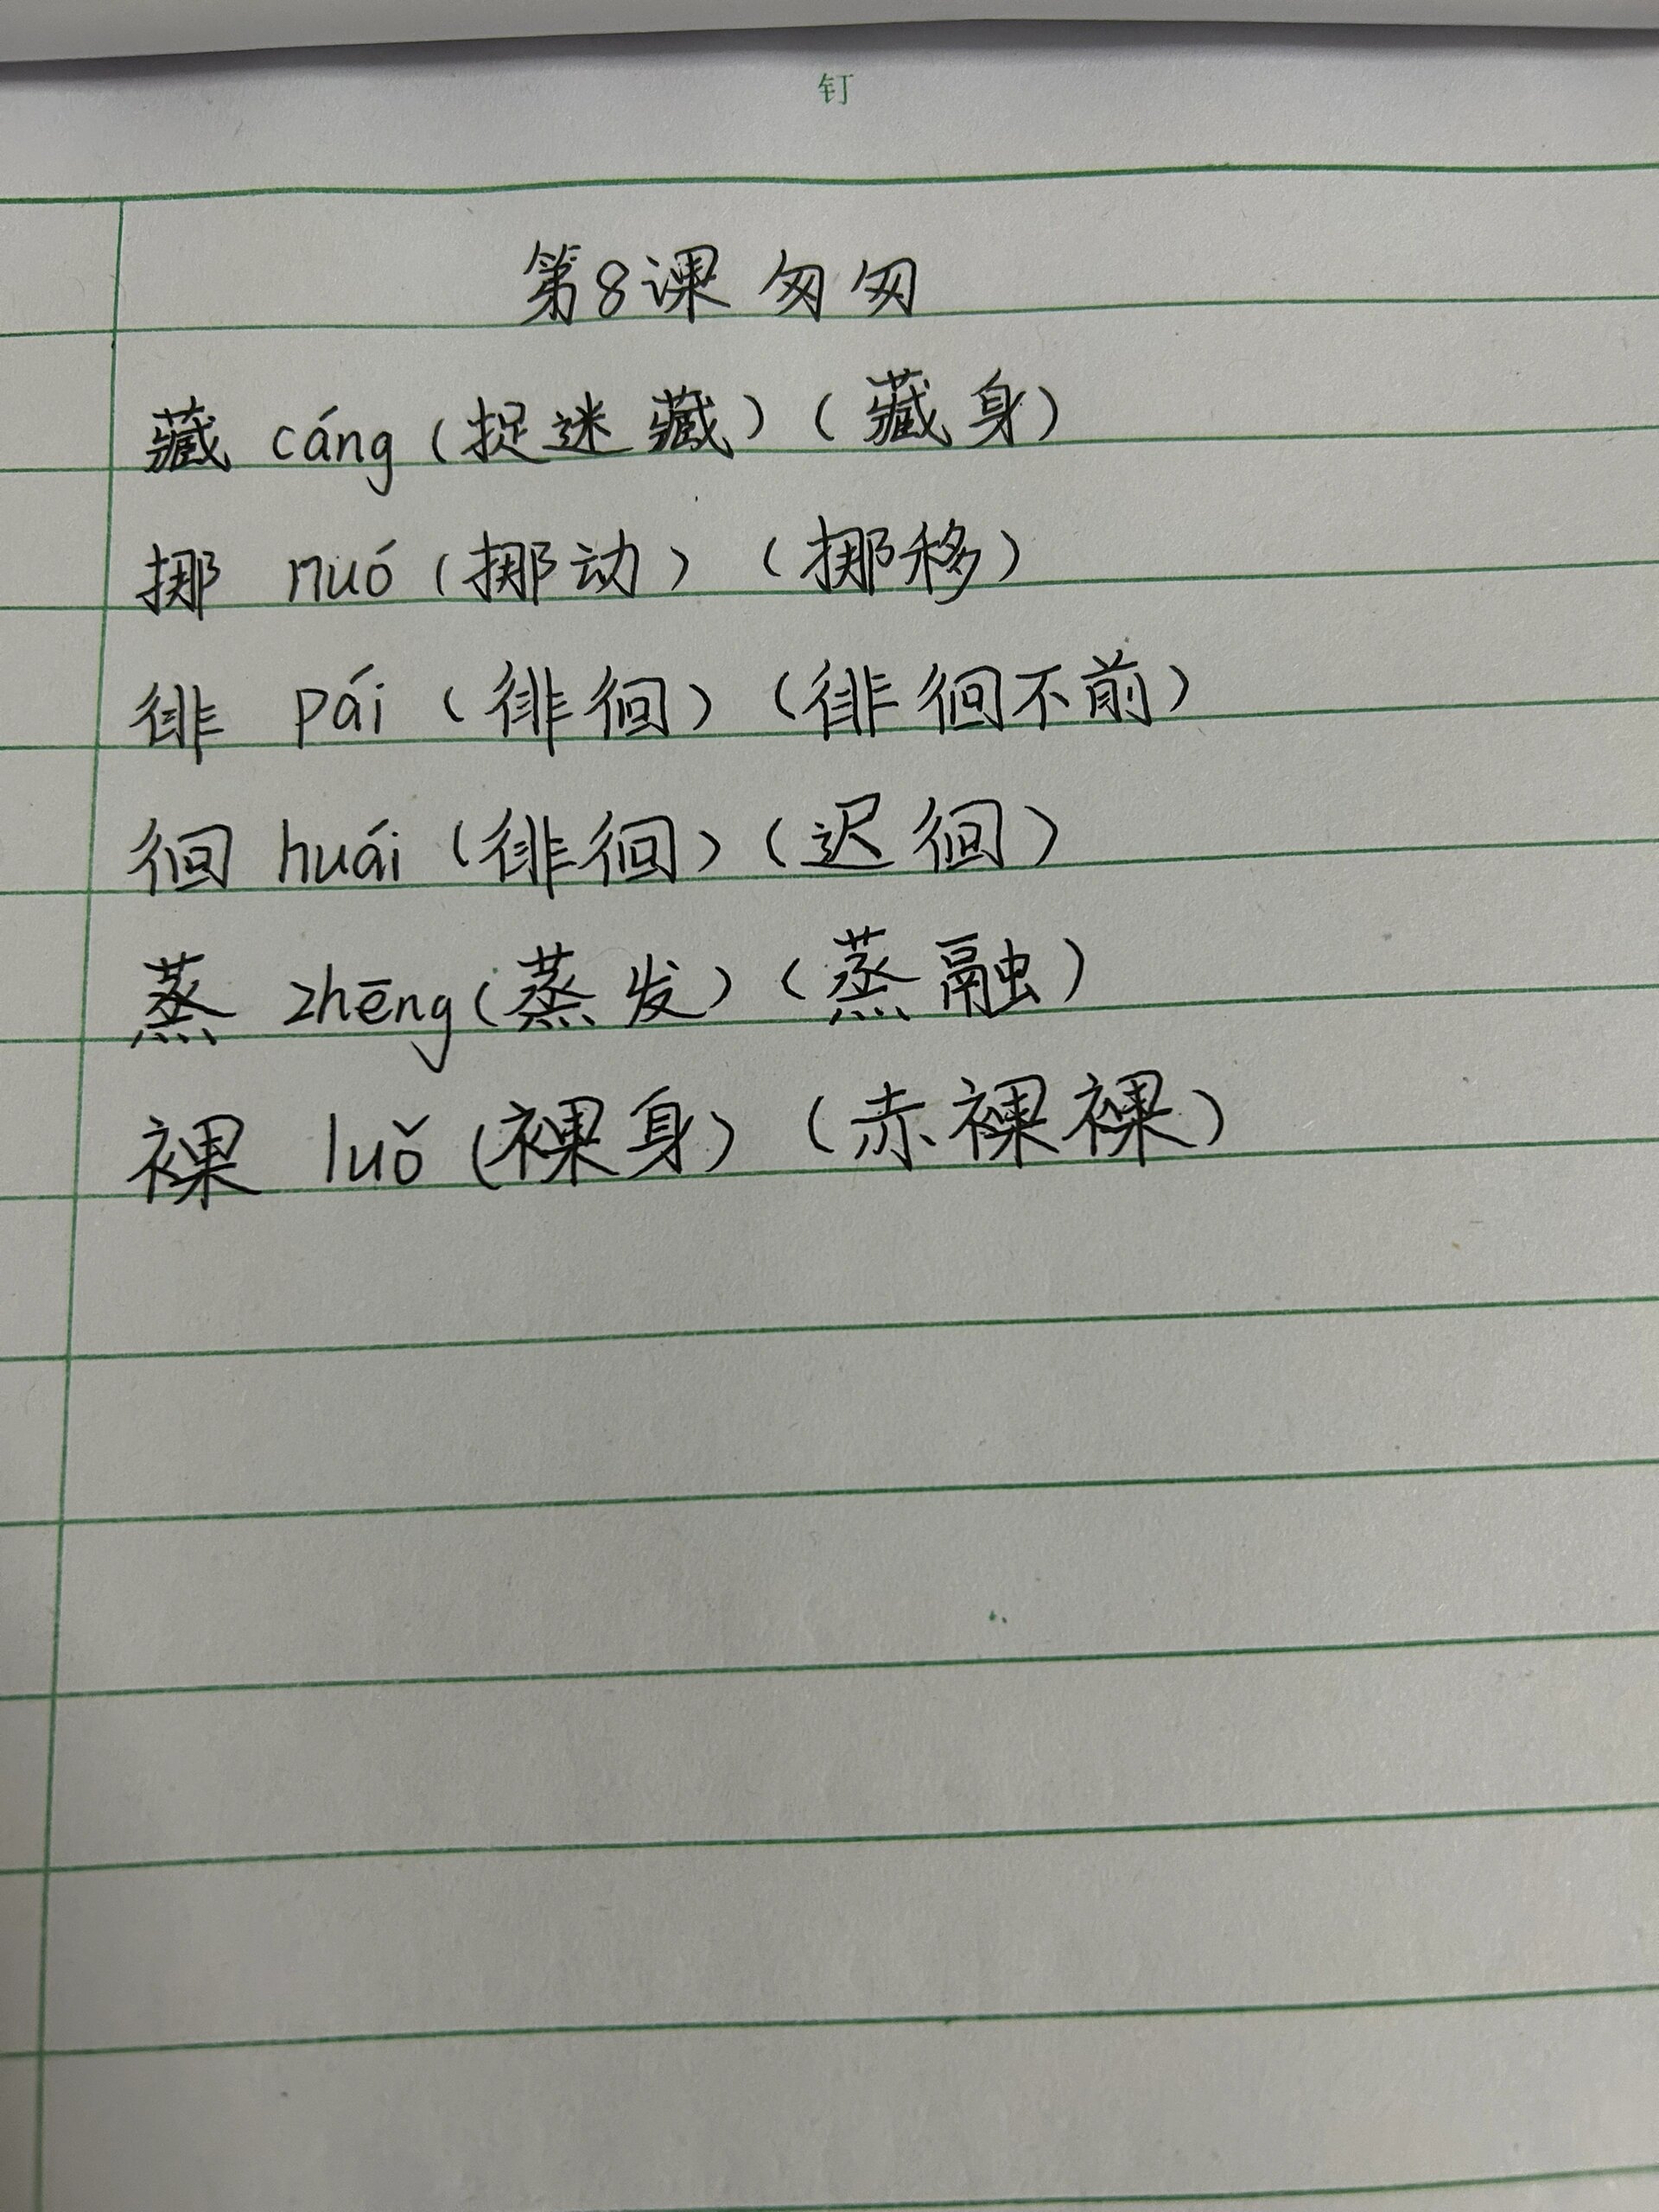 钉
第8课 匆匆
藏 cáng (捉迷藏) (藏身)
挪 nuó (挪动) (挪移)
徘 pái (徘徊) (徘徊不前)
徊 huái (徘徊) (迟徊)
蒸 zhēng (蒸发) (蒸融)
裸 luǒ (裸身) (赤裸裸)